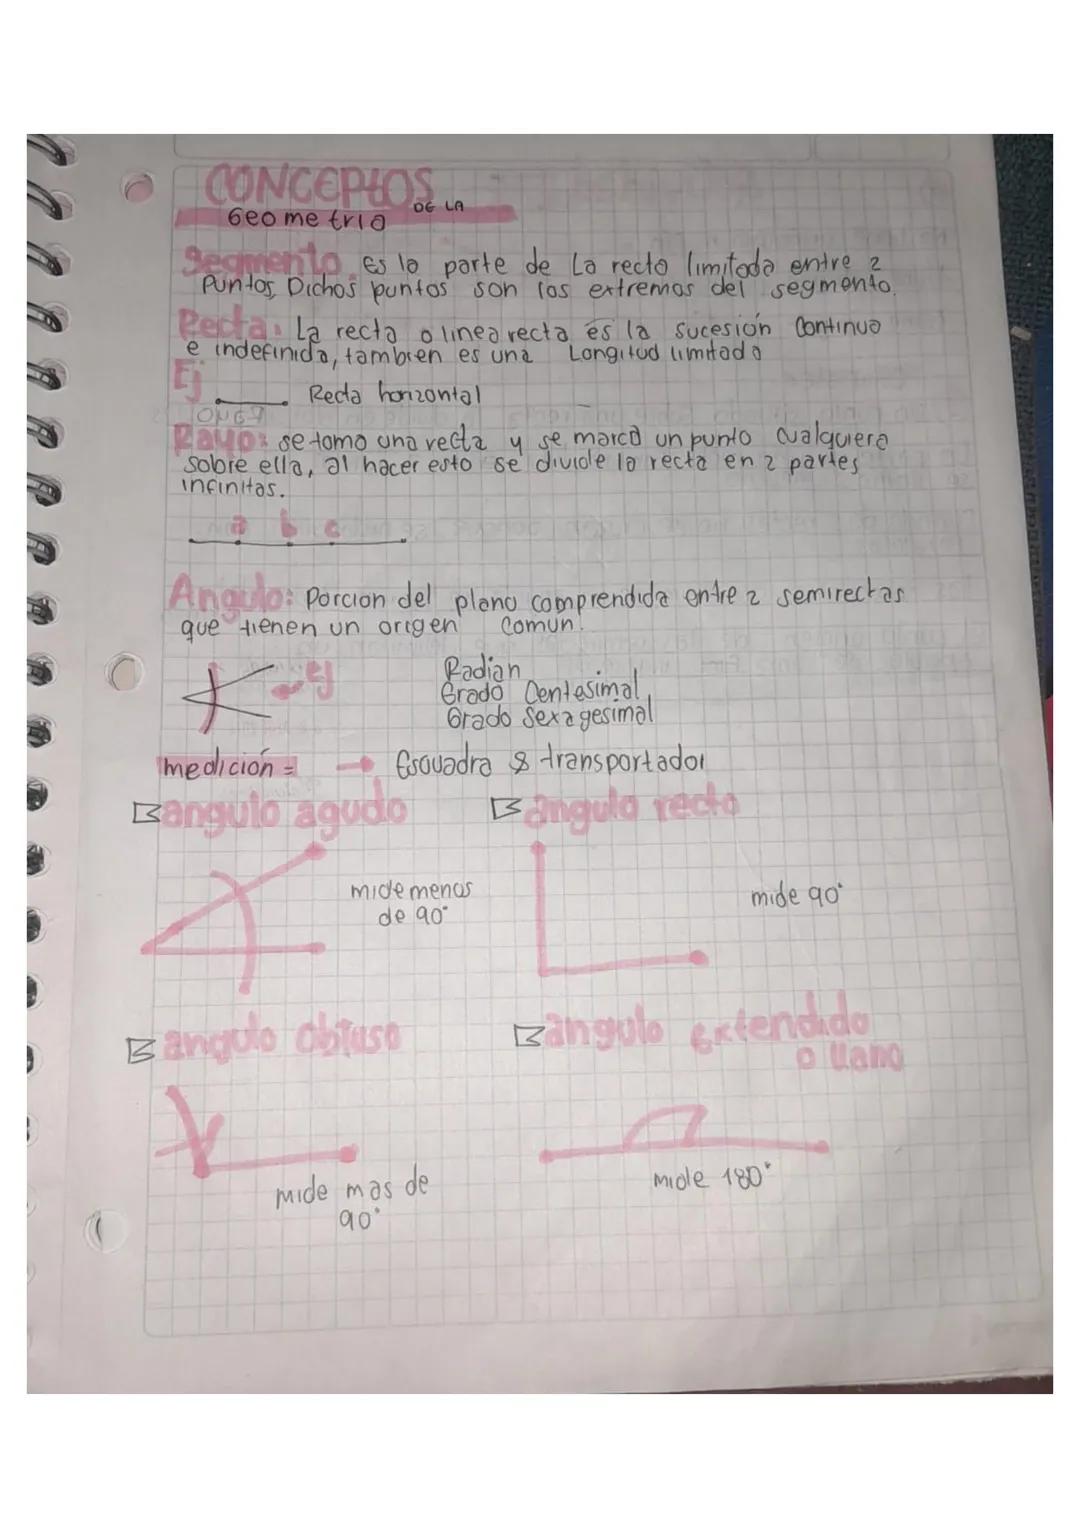 CONCEPtOS
DE LA
Geometria
Segmento. Es la parte de La recta limitada entre 2
puntos, Dichos puntos son los extremos del segmento.
Recta: La recta o linea recta es la sucesión Continua
e indefinida, tambien es una Longitud limitada
Ej
Recta horizontal
Rayo: se toma una recta y se marca un punto Cualquiera
sobre ella, al hacer esto se divide la recta en 2 partes
infinitas.
a b c
Angulo: Porcion del plano comprendida entre 2 semirectas
que tienen un origen comun.
Ej
Radian
Grado Centesimal
Grado Sexagesimal
medición = → Escuadra & transportador
angulo agudo angulo recto
mide menos
de 90°
mide 90°
angulo obtuso angulo extendido
o llano
mide mas de
90°
mide 180°